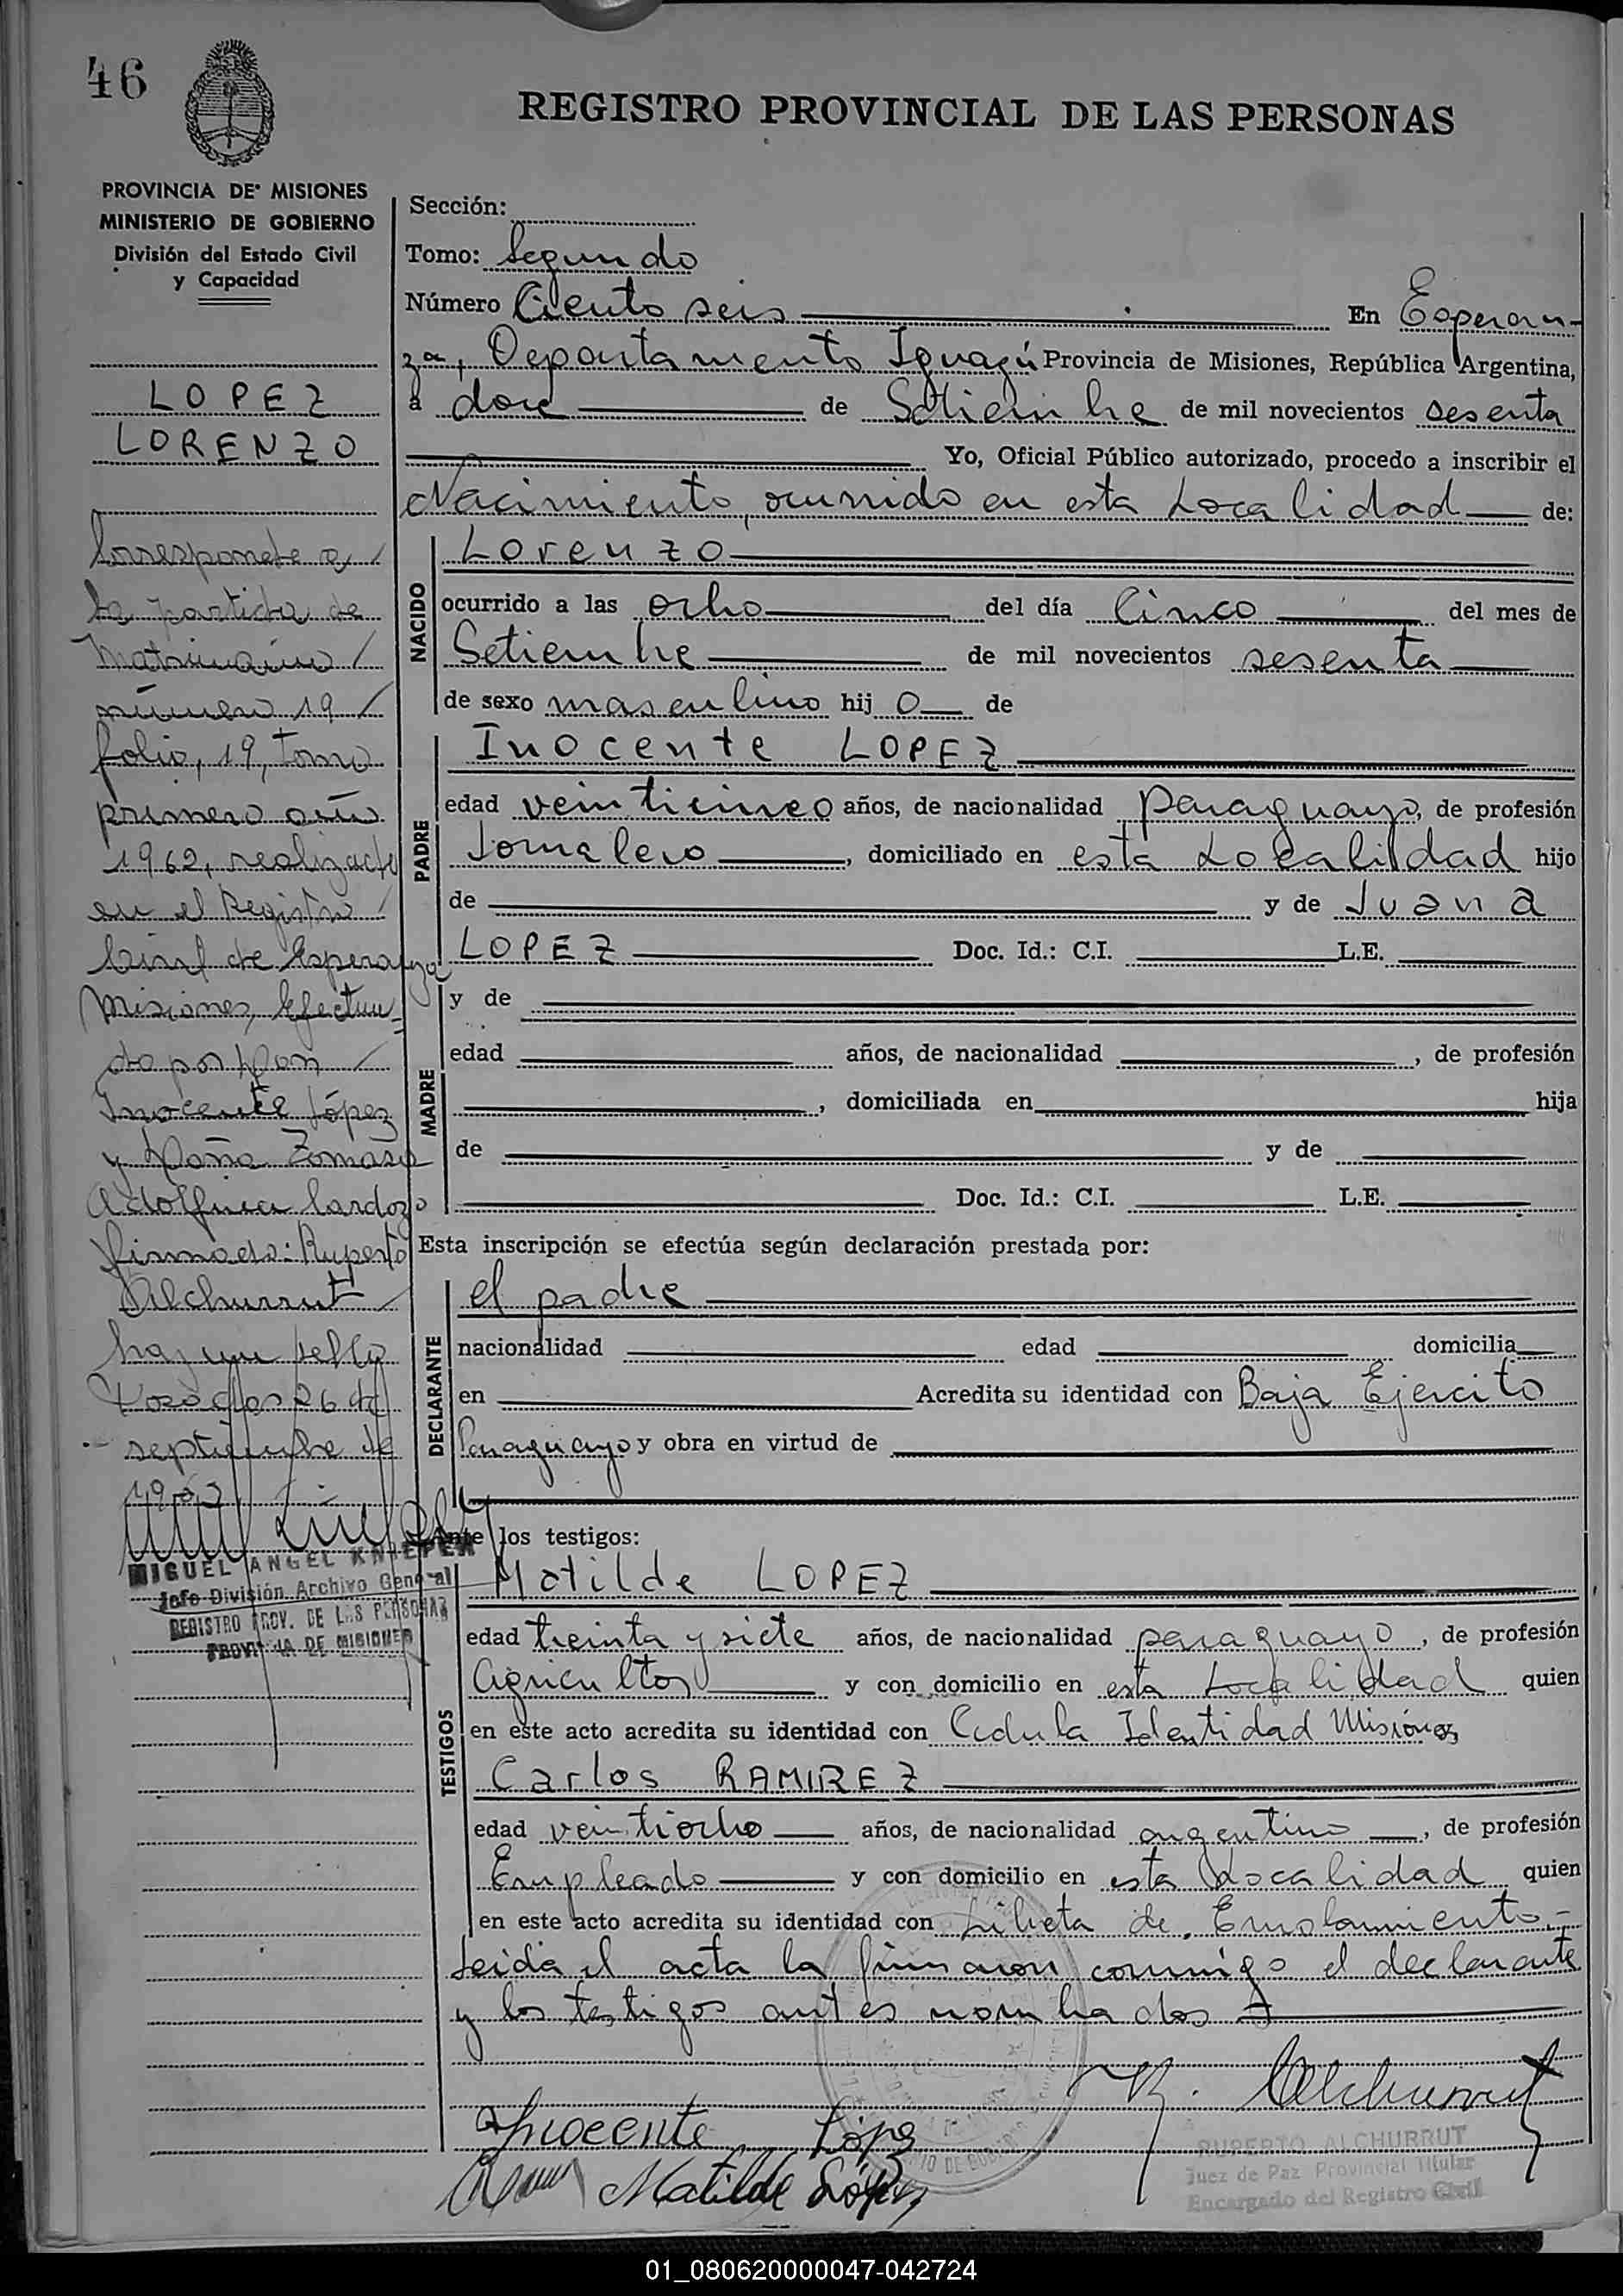 46
REGISTRO PROVINCIAL DE LAS PERSONAS
PROVINCIA DE MISIONES
MINISTERIO DE GOBIERNO
División del Estado Civil
y Capacidad
LOPEZ
LORENZO
Corresponde a
la partida de
Matrimonio
número 19
folio, 19, tomo
primero año
1962, realizada
en el Registro
Civil de Esperanza
Misiones, efectua-
do por Don
Inocente López
y Doña Tomasa
Adolfina Cardozo
firmado: Ruperto
Alchurrut
hay un sello
Posadas 26 de
septiembre de
MIGUEL ANGEL KNIEPER
Jefe División Archivo General
REGISTRO PROV. DE LAS PERSONAS
PROVINCIA DE MISIONES
Sección:
Tomo: Segundo
Número Ciento seis En Esperan-
za, Departamento Iguazú Provincia de Misiones, República Argentina,
a doce de Setiembre de mil novecientos sesenta
Yo, Oficial Público autorizado, procedo a inscribir el
Nacimiento, ocurrido en esta Localidad de:
NACIDO
Lorenzo
ocurrido a las ocho del día Cinco del mes de
Setiembre de mil novecientos sesenta
de sexo masculino hij o de
PADRE
Inocente LOPEZ
edad veinticinco años, de nacionalidad paraguayo, de profesión
Jornalero, domiciliado en esta Localidad hijo
de y de Juana
LOPEZ Doc. Id.: C.I. L.E.
MADRE
y de
edad años, de nacionalidad , de profesión
, domiciliada en hija
de y de
Doc. Id.: C.I. L.E.
Esta inscripción se efectúa según declaración prestada por:
DECLARANTE
el padre
nacionalidad edad domicilia
en Acredita su identidad con Baja Ejercito
Paraguayo y obra en virtud de
Ante los testigos:
TESTIGOS
Matilde LOPEZ
edad treinta y siete años, de nacionalidad paraguayo, de profesión
agricultor y con domicilio en esta Localidad quien
en este acto acredita su identidad con Cedula Identidad Misiones
Carlos RAMIREZ
edad veintiocho años, de nacionalidad argentino, de profesión
Empleado y con domicilio en esta Localidad quien
en este acto acredita su identidad con Libreta de Enrolamiento.-
Leida el acta la firmaron conmigo el declarante
y los testigos antes nombrados
R. Alchurrut
Inocente López
Matilde López
RUPERTO ALCHURRUT
Juez de Paz Provincial Titular
Encargado del Registro Civil
01_080620000047-042724